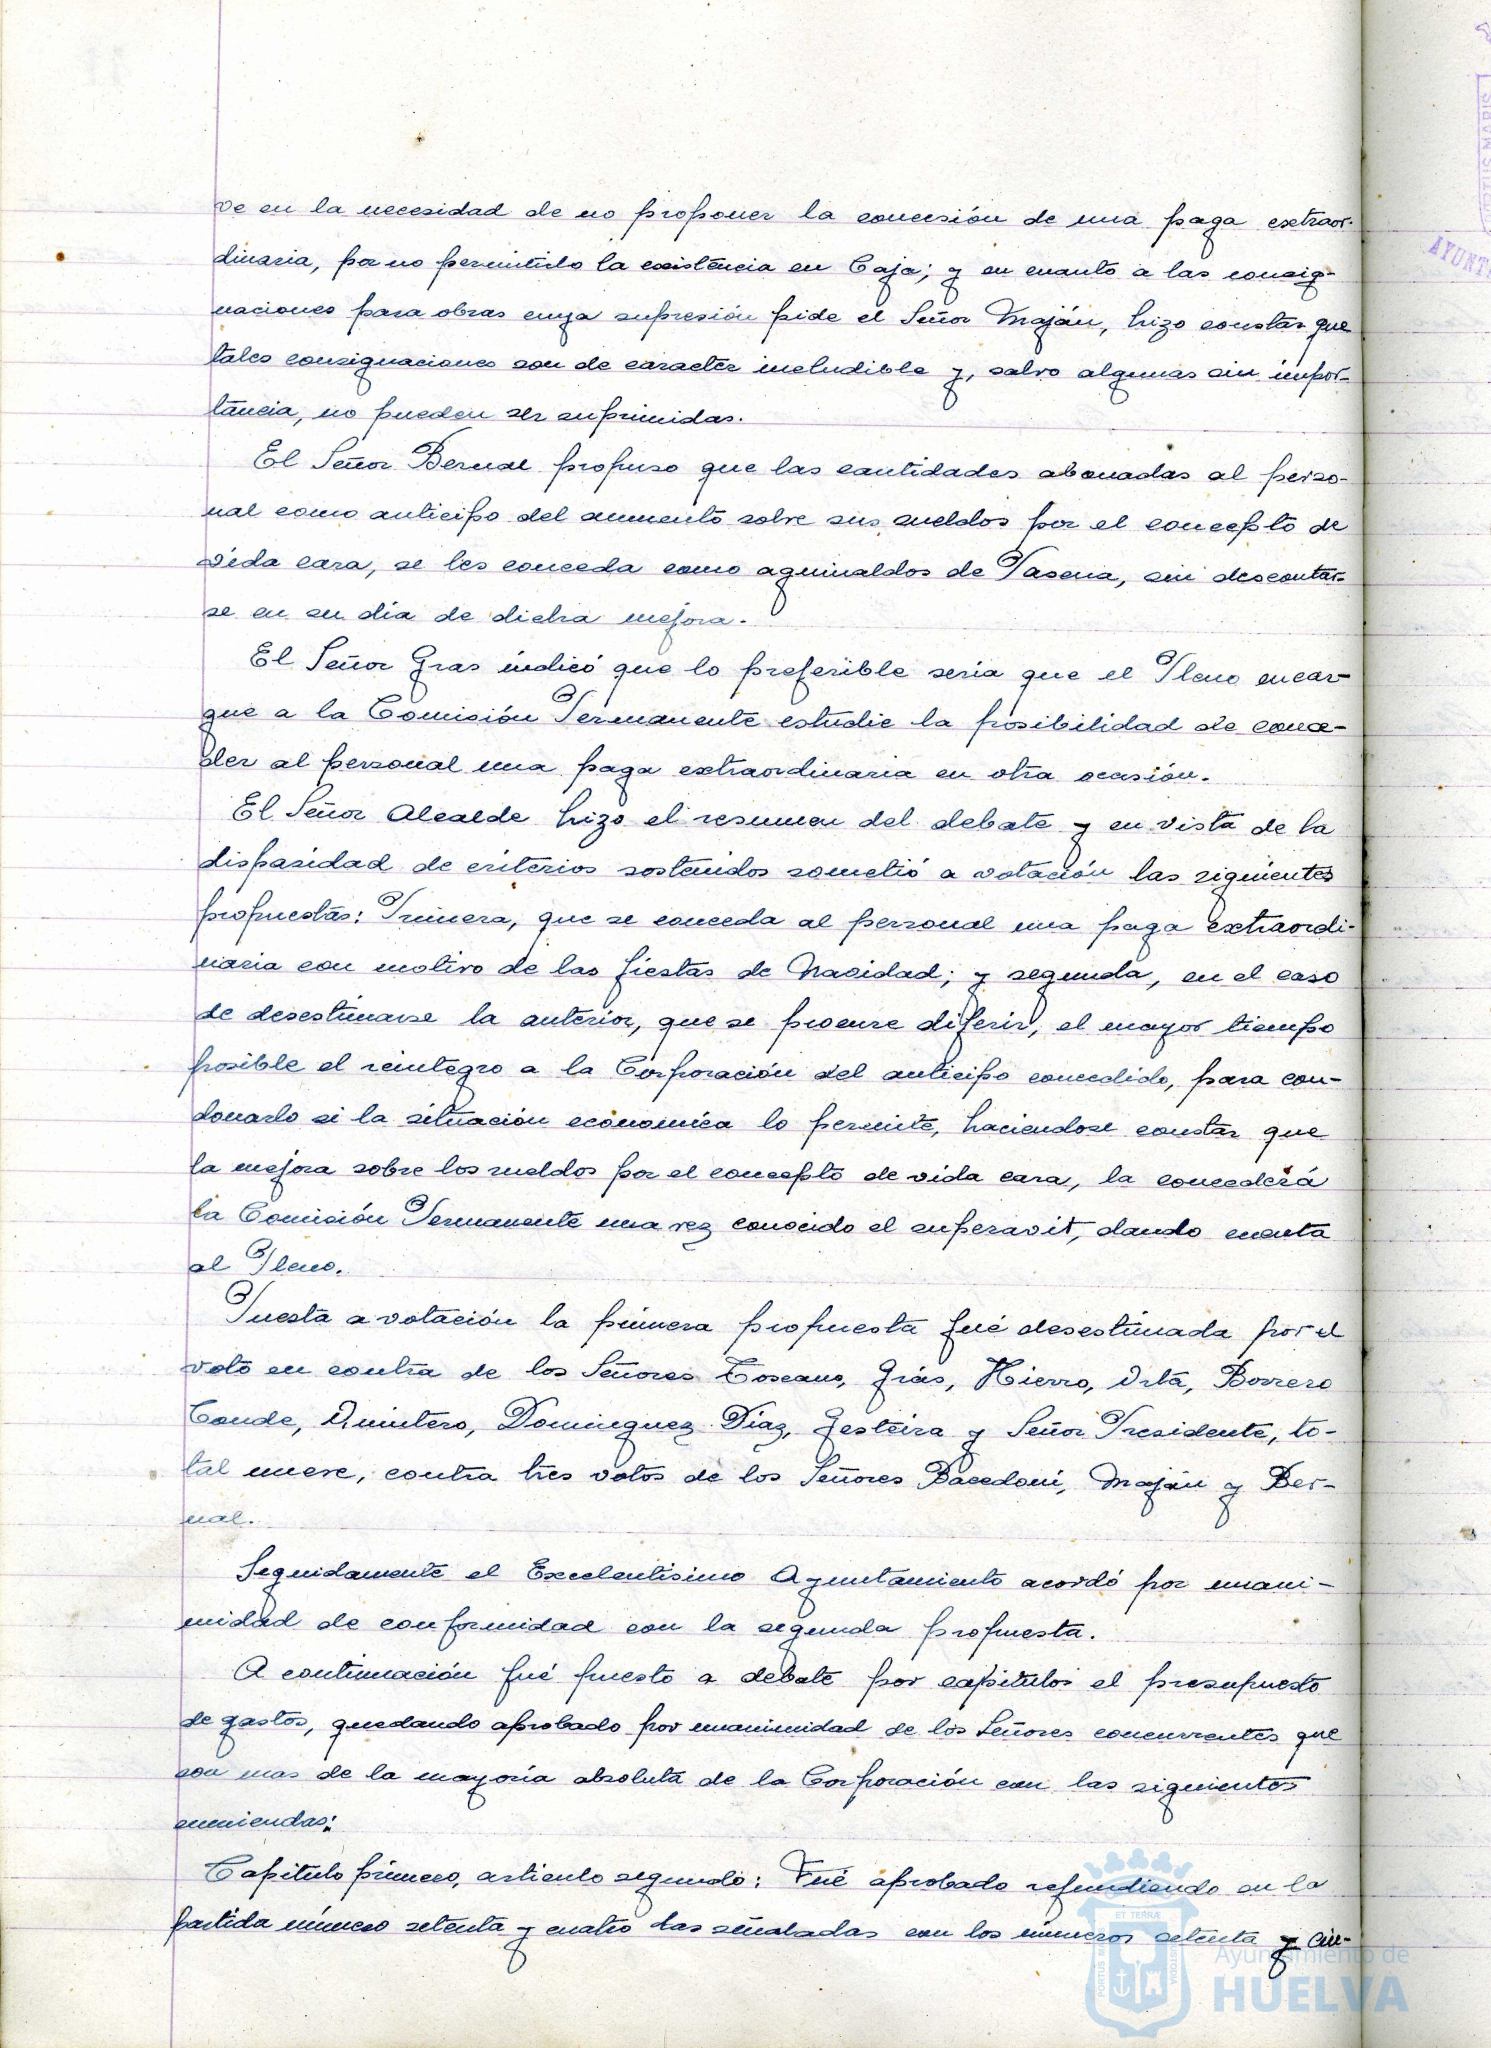 ve en la necesidad de no proponer la concesión de una paga extraor-
dinaria, por no permitirlo la existencia en Caja; y en cuanto a las consig-
naciones para obras cuya supresión pide el Señor Maján, hizo constar que
tales consignaciones son de caracter ineludible y, salvo algunas sin impor-
tancia, no pueden ser suprimidas.
El Señor Bernal propuso que las cantidades abonadas al perso-
nal como anticipo del aumento sobre sus sueldos por el concepto de
vida cara, se les conceda como aguinaldos de Pascua, sin descontar-
se en su dia de dicha mejora.
El Señor Gras indicó que lo preferible sería que el Pleno encar-
gue a la Comisión Permanente estudie la posibilidad de conce-
der al personal una paga extraordinaria en otra ocasión.
El Señor Alcalde hizo el resumen del debate y en vista de la
disparidad de criterios sostenidos sometió a votación las siguientes
propuestas: Primera, que se conceda al personal una paga extraordi-
naria con motivo de las fiestas de Navidad; y segunda, en el caso
de desestimarse la anterior, que se procure diferir, el mayor tiempo
posible el reintegro a la Corporación del anticipo concedido, para con-
donarlo si la situación economica lo permite, haciendose constar que
la mejora sobre los sueldos por el concepto de vida cara, la concederá
la Comisión Permanente una vez conocido el superavit, dando cuenta
al Pleno.
Puesta a votación la primera propuesta fué desestimada por el
voto en contra de los Señores Toscano, Grás, Hierro, Orta, Borrero
Conde, Quintero, Dominguez Diaz, Gesteira y Señor Presidente, to-
tal nueve, contra tres votos de los Señores Bacedoni, Maján y Ber-
nal.
Seguidamente el Excelentisimo Ayuntamiento acordó por unani-
midad de conformidad con la segunda propuesta.
A continuación fué puesto a debate por capitulos el presupuesto
de gastos, quedando aprobado por unanimidad de los Señores concurrentes que
son mas de la mayoría absoluta de la Corporación con las siguientes
enmiendas:
Capitulo primero, articulo segundo: Fué aprobado refundiendo en la
partida número setenta y cuatro las señaladas con los números setenta y cin-
Ayuntamiento de
HUELVA
PORTUS MARIS
ET TERRÆ
CUSTODIA
AYUNT